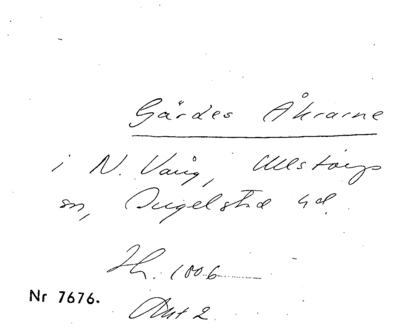 Gärdes Åkrarne
i N. Vång, Ullstorps
sn, Ingelstad hd.
Zh. 1006
Nr 7676.
Akt 2